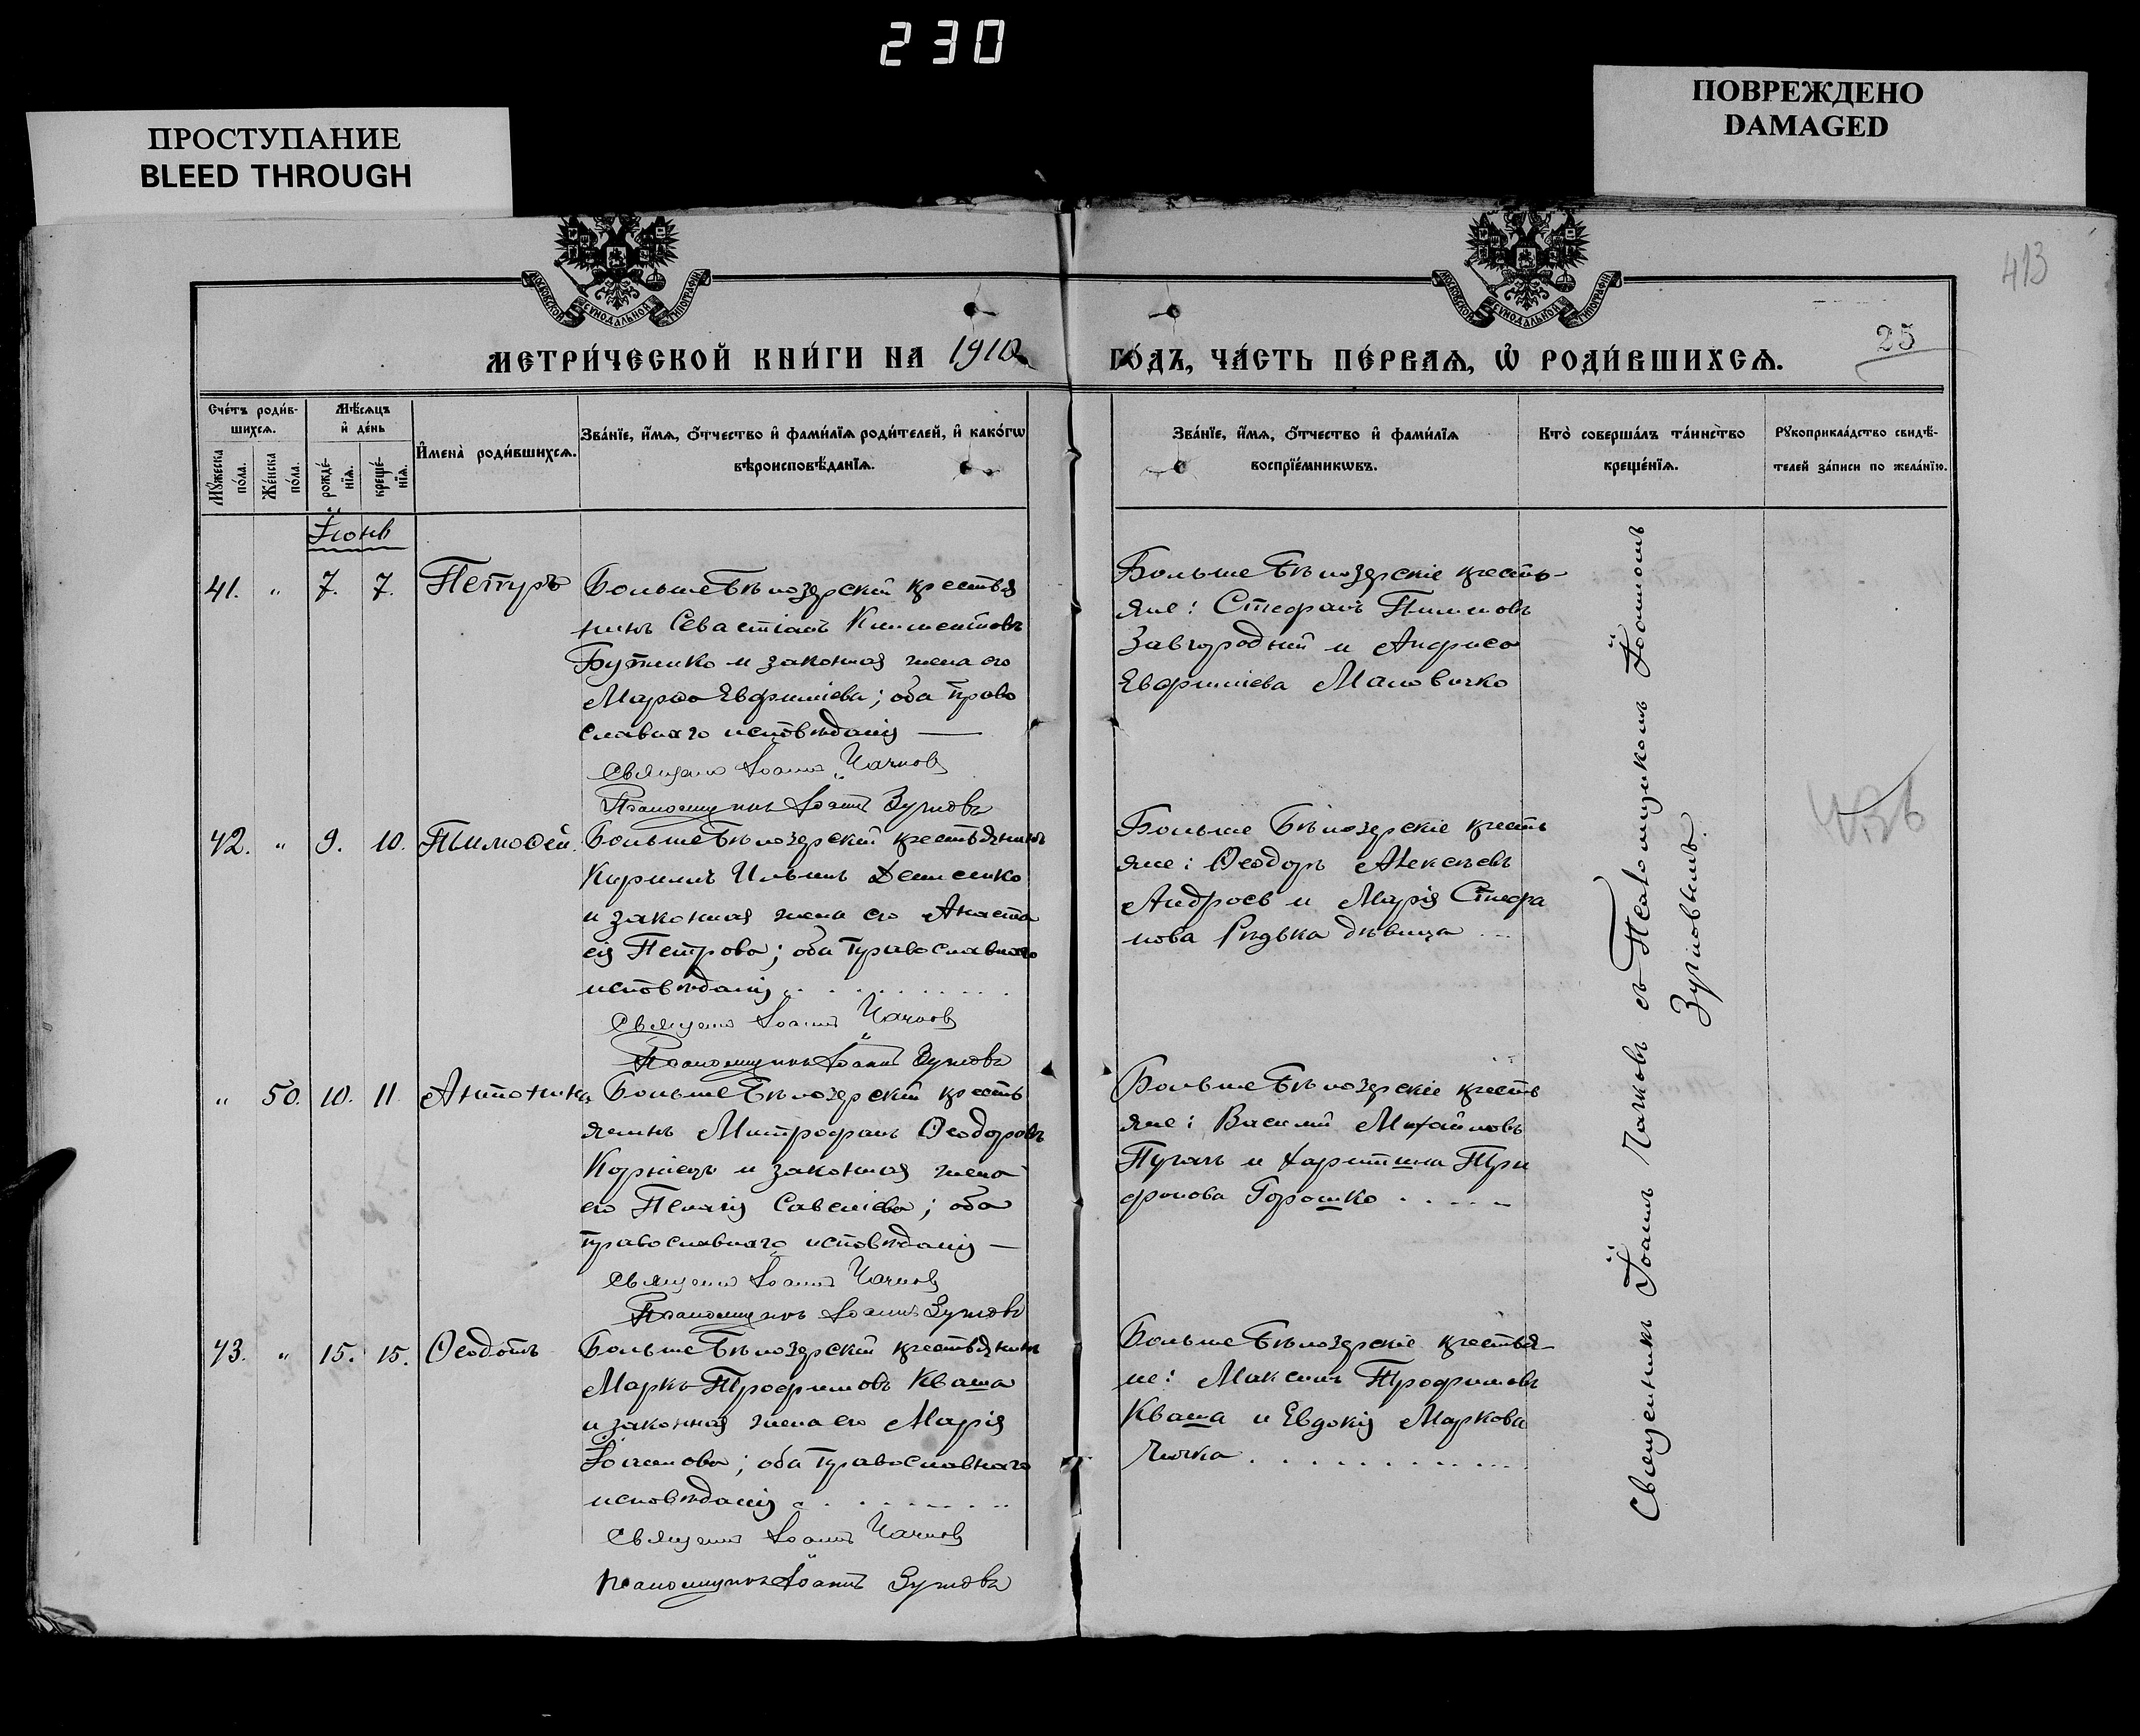 230
ПРОСТУПАНИЕ
BLEED THROUGH
ПОВРЕЖДЕНО
DAMAGED
413
25
МЕТРИ́ЧЕСКОЙ КНИ́ГИ НА 1910
ГО́ДЪ, ЧА́СТЬ ПЕ́РВАѦ, Ѡ҆ РОДИ́ВШИХСѦ.
Сче́тъ роди́в-
шихсѧ.
Мѣ́сѧцъ
и҆ де́нь
Мꙋ́жеска
по́ла.
Же́нска
по́ла.
рожде́-
нїѧ.
креще́-
нїѧ.
И҆мена̀ роди́вшихсѧ.
Зва́нїе, и҆́мѧ, ѻ҆́тчество и҆ фами́лїѧ роди́телей, и҆ како́гѡ
вѣроисповѣ́данїѧ.
Зва́нїе, и҆́мѧ, ѻ҆́тчество и҆ фами́лїѧ
воспрїе́мникѡвъ.
Кто̀ соверша́лъ та́инство
креще́нїѧ.
Рꙋкоприкла́дство свидѣ́-
телей за́писи по жела́нїю.
Іюнь
41. " 7. 7. Петръ
БольшеБѣлозерскій крестья
нинъ Севастіанъ Климентовъ
и законная жена его
Марѳа Евфиміева; оба право
славнаго исповѣданія —
Священ Іоаннъ Чачковъ
Псаломщикъ Іоаннъ Зугловъ
Больше Бѣлозерскіе кресть-
яне: Стефанъ Пименовъ
Завгородній и
Евфиміева
42. " 9. 10. Тимоѳей.
БольшеБѣлозерскій крестьянинъ
Кириллъ Ильинъ Денисенко
и законная жена его Анаста
сія Петрова; оба православнаго
исповѣданія
Священ Іоаннъ Чачковъ
Псаломщикъ Іоаннъ Зугловъ
Больше Бѣлозерскіе кресть
яне: Ѳеодоръ Алексѣевъ
Андросъ и Марія Стефа
нова Рѣдька дѣвица
" 50. 10. 11. Антонина
БольшеБѣлозерскій кресть
янинъ Митрофанъ Ѳеодоровъ
Корніецъ и законная жена
его Пелагія Савеліева; оба
православнаго исповѣданія —
Священ Іоаннъ Чачковъ
Псаломщикъ Іоаннъ Зугловъ
БольшеБѣлозерскіе кресть
яне: Василій Михайловъ
Пугачъ и Харитина Три
фонова Горошко
43. " 15. 15. Ѳеодотъ
БольшеБѣлозерскій крестьянинъ
Маркъ Трофимовъ Кваша
и законная жена его Марія
Іоаннова; оба православнаго
исповѣданія
Священ Іоаннъ Чачковъ
Псаломщикъ Іоаннъ Зугловъ
БольшеБѣлозерскіе крестья-
не: Максимъ Трофимовъ
Кваша и Евдокія Маркова
Священникъ Іоаннъ Чачковъ съ Псаломщикомъ Іоанномъ